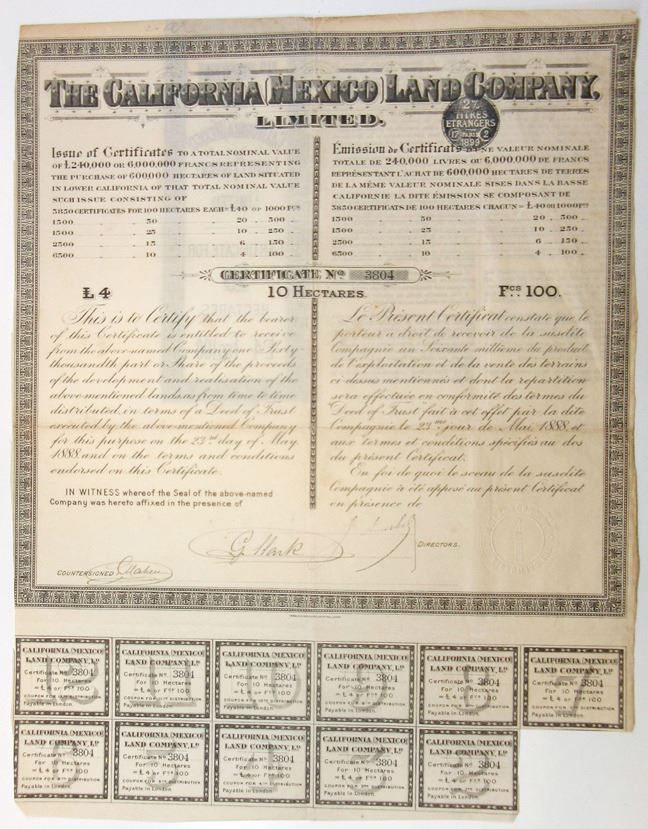 THE CALIFORNIA (MEXICO) LAND COMPANY,
LIMITED.
2%
TITRES
ETRANGERS
17 PARIS 2
1899
Issue of Certificates TO A TOTAL NOMINAL VALUE
OF £240,000 OR 6,000,000 FRANCS REPRESENTING
THE PURCHASE OF 600,000 HECTARES OF LAND SITUATED
IN LOWER CALIFORNIA OF THAT TOTAL NOMINAL VALUE
SUCH ISSUE CONSISTING OF
3850 CERTIFICATES FOR 100 HECTARES EACH = £40 OR 1000 FCS
1500 .. 50 .. 20 .. 500 ..
1500 .. 25 .. 10 .. 250 ..
2500 .. 15 .. 6 .. 150 ..
6500 .. 10 .. 4 .. 100 ..
Émission de Certificats NE VALEUR NOMINALE
TOTALE DE 240,000 LIVRES OU 6,000,000 DE FRANCS
REPRÉSENTANT L'ACHAT DE 600,000 HECTARES DE TERRES
DE LA MÊME VALEUR NOMINALE SISES DANS LA BASSE
CALIFORNIE LA DITE ÉMISSION SE COMPOSANT DE
3850 CERTIFICATS DE 100 HECTARES CHACUN = £40 OU 1000 FCS
1500 .. 50 .. 20 .. 500 ..
1500 .. 25 .. 10 .. 250 ..
2500 .. 15 .. 6 .. 150 ..
6500 .. 10 .. 4 .. 100 ..
CERTIFICATE No 3804
£4 10 HECTARES. Fcs 100.
This is to Certify that the bearer
of this Certificate is entitled to receive
from the above-named Company one Sixty
thousandth part or Share of the proceeds
of the development and realisation of the
above mentioned lands as from time to time
distributed in terms of a Deed of Trust
executed by the above mentioned Company
for this purpose on the 23rd day of May
1888 and on the terms and conditions
endorsed on this Certificate.
IN WITNESS whereof the Seal of the above-named
Company was hereto affixed in the presence of
Le Présent Certificat constate que le
porteur a droit de recevoir de la susdite
Compagnie un Soixante millième du produit
de l'exploitation et de la vente des terrains
ci-dessus mentionnés et dont la repartition
sera effectuée en conformité des termes du
Deed of Trust fait à cet effet par la dite
Compagnie le 23me jour de Mai, 1888 et
aux termes et conditions spécifiés au dos
du présent Certificat.
En foi de quoi le sceau de la susdite
Compagnie à été apposé au présent Certificat
en présence de
G. Stark
DIRECTORS.
COUNTERSIGNED
CALIFORNIA (MEXICO)
LAND COMPANY, Ld
Certificate No 3804
For 10 Hectares
= £4 or Fcs 100
Payable in London.
CALIFORNIA (MEXICO)
LAND COMPANY, Ld
Certificate No 3804
For 10 Hectares
= £4 or Fcs 100
Payable in London.
CALIFORNIA (MEXICO)
LAND COMPANY, Ld
Certificate No 3804
For 10 Hectares
= £4 or Fcs 100
Payable in London.
CALIFORNIA (MEXICO)
LAND COMPANY, Ld
Certificate No 3804
For 10 Hectares
= £4 or Fcs 100
Payable in London.
CALIFORNIA (MEXICO)
LAND COMPANY, Ld
Certificate No 3804
For 10 Hectares
= £4 or Fcs 100
Payable in London.
CALIFORNIA (MEXICO)
LAND COMPANY, Ld
Certificate No 3804
For 10 Hectares
= £4 or Fcs 100
Payable in London.
CALIFORNIA (MEXICO)
LAND COMPANY, Ld
Certificate No 3804
For 10 Hectares
= £4 or Fcs 100
Payable in London.
CALIFORNIA (MEXICO)
LAND COMPANY, Ld
Certificate No 3804
For 10 Hectares
= £4 or Fcs 100
Payable in London.
CALIFORNIA (MEXICO)
LAND COMPANY, Ld
Certificate No 3804
For 10 Hectares
= £4 or Fcs 100
Payable in London.
CALIFORNIA (MEXICO)
LAND COMPANY, Ld
Certificate No 3804
For 10 Hectares
= £4 or Fcs 100
Payable in London.
CALIFORNIA (MEXICO)
LAND COMPANY, Ld
Certificate No 3804
For 10 Hectares
= £4 or Fcs 100
Payable in London.